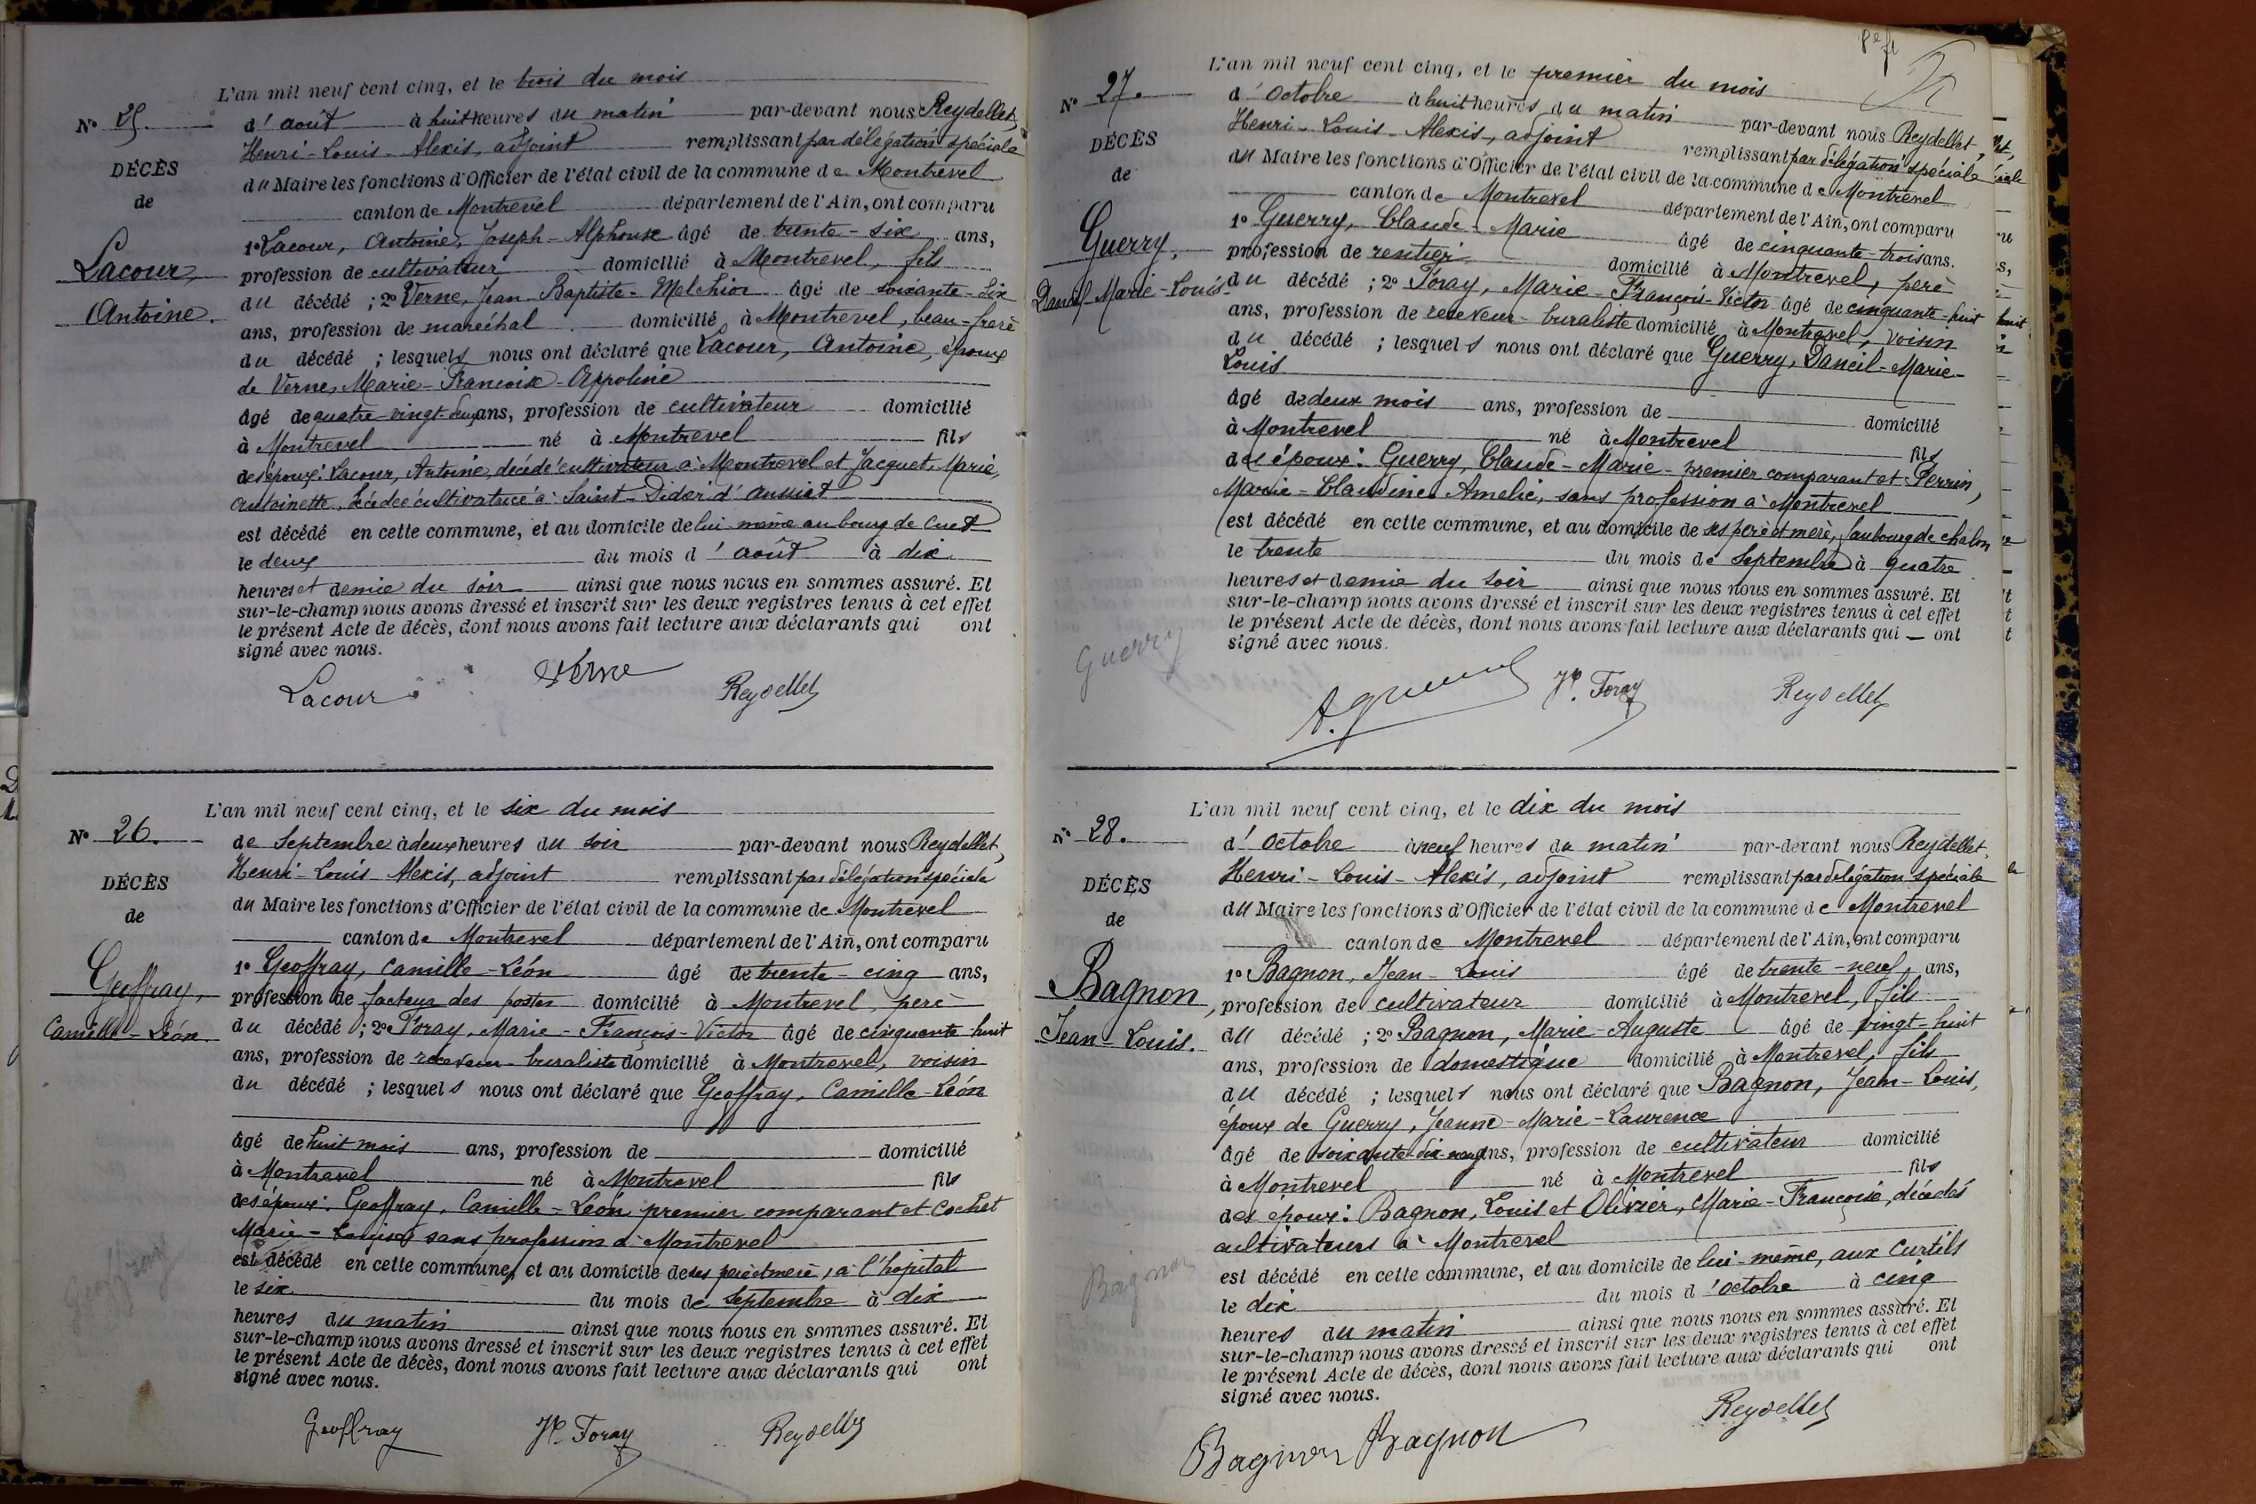 L'an mil neuf cent cinq, et le trois du mois
N° 25.
d'août à huit heures du matin par-devant nous Reydellet,
Henri-Louis-Alexis, adjoint remplissant par délégation spéciale
DÉCÈS
du Maire les fonctions d'Officier de l'état civil de la commune de Montrevel
de
canton de Montrevel département de l'Ain, ont comparu
1° Lacour, Antoine, Joseph-Alphonse âgé de trente-six ans,
Lacour,
profession de cultivateur domicilié à Montrevel, fils
Antoine.
du décédé ; 2° Verne, Jean-Baptiste-Melchior âgé de soixante-six
ans, profession de maréchal domicilié à Montrevel, beau-frère
du décédé ; lesquels nous ont déclaré que Lacour, Antoine, époux
de Verne, Marie-Françoise-Appoline
âgé de quatre-vingt-deux ans, profession de cultivateur domicilié
à Montrevel né à Montrevel fils
des époux: Lacour, Antoine, décédé cultivateur à Montrevel et Jacquet, Marie,
Antoinette, décédée cultivatrice à Saint-Didier d'Aussiat
est décédé en cette commune, et au domicile de lui-même au bourg de Cuet
le deux du mois d'août à dix
heures et demie du soir ainsi que nous nous en sommes assuré. Et
sur-le-champ nous avons dressé et inscrit sur les deux registres tenus à cet effet
le présent Acte de décès, dont nous avons fait lecture aux déclarants qui ont
signé avec nous.
Lacour Verne Reydellet
L'an mil neuf cent cinq, et le six du mois
N° 26.
de Septembre à deux heures du soir par-devant nous Reydellet,
Henri-Louis-Alexis, adjoint remplissant par délégation spéciale
DÉCÈS
du Maire les fonctions d'Officier de l'état civil de la commune de Montrevel
de
canton de Montrevel département de l'Ain, ont comparu
1° Geoffray, Camille-Léon âgé de trente-cinq ans,
Geoffray,
profession de facteur des postes domicilié à Montrevel, père
Camille-Léon.
du décédé ; 2° Foray, Marie-François-Victor âgé de cinquante-huit
ans, profession de receveur-buraliste domicilié à Montrevel, voisin
du décédé ; lesquels nous ont déclaré que Geoffray, Camille-Léon
âgé de huit mois ans, profession de domicilié
à Montrevel né à Montrevel fils
des époux: Geoffray, Camille-Léon, premier comparant et Cochet
Marie-Louise, sans profession à Montrevel
est décédé en cette commune, et au domicile de ses père et mère, à l'hôpital
le six du mois de Septembre à dix
heures du matin ainsi que nous nous en sommes assuré. Et
sur-le-champ nous avons dressé et inscrit sur les deux registres tenus à cet effet
le présent Acte de décès, dont nous avons fait lecture aux déclarants qui ont
signé avec nous.
Geoffray
Geoffray Foray Reydellet
L'an mil neuf cent cinq, et le premier du mois
N° 27.
d'Octobre à huit heures du matin par-devant nous Reydellet,
Henri-Louis-Alexis, adjoint remplissant par délégation spéciale
DÉCÈS
du Maire les fonctions d'Officier de l'état civil de la commune de Montrevel
de
canton de Montrevel département de l'Ain, ont comparu
1° Guerry, Claude-Marie âgé de cinquante-trois ans.
Guerry,
profession de rentier domicilié à Montrevel, père
Daneil-Marie-Louis
du décédé ; 2° Foray, Marie-François-Victor âgé de cinquante-huit
ans, profession de receveur-buraliste domicilié à Montrevel, voisin
du décédé ; lesquels nous ont déclaré que Guerry, Daneil-Marie-
Louis
âgé de deux mois ans, profession de domicilié
à Montrevel né à Montrevel fils
des époux: Guerry, Claude-Marie-premier comparant et Perrin,
Marie-Claudine-Amelie, sans profession à Montrevel
est décédé en cette commune, et au domicile de ses père et mère, faubourg de chalon
le trente du mois de Septembre à quatre
heures et demie du soir ainsi que nous nous en sommes assuré. Et
sur-le-champ nous avons dressé et inscrit sur les deux registres tenus à cet effet
le présent Acte de décès, dont nous avons fait lecture aux déclarants qui — ont
signé avec nous.
Guerry
Foray Reydellet
L'an mil neuf cent cinq, et le dix du mois
N° 28.
d'Octobre à neuf heures du matin par-devant nous Reydellet,
Henri-Louis-Alexis, adjoint remplissant par délégation spéciale
DÉCÈS
du Maire les fonctions d'Officier de l'état civil de la commune de Montrevel
de
canton de Montrevel département de l'Ain, ont comparu
1° Bagnon, Jean-Louis âgé de trente-neuf, ans,
Bagnon,
profession de cultivateur domicilié à Montrevel, fils
Jean-Louis.
du décédé ; 2° Bagnon, Marie-Auguste âgé de vingt-huit
ans, profession de domestique domicilié à Montrevel, fils
du décédé ; lesquels nous ont déclaré que Bagnon, Jean-Louis,
époux de Guerry, Jeanne-Marie-Laurence
âgé de soixante-dix-neuf ans, profession de cultivateur domicilié
à Montrevel né à Montrevel fils
des époux: Bagnon, Louis et Olivier, Marie-Françoise, décédés
cultivateurs à Montrevel
est décédé en cette commune, et au domicile de lui-même, aux Curtils
le dix du mois d'octobre à cinq
heures du matin ainsi que nous nous en sommes assuré. Et
sur-le-champ nous avons dressé et inscrit sur les deux registres tenus à cet effet
le présent Acte de décès, dont nous avons fait lecture aux déclarants qui ont
signé avec nous.
Bagnon
Bagnon Bagnon Reydellet